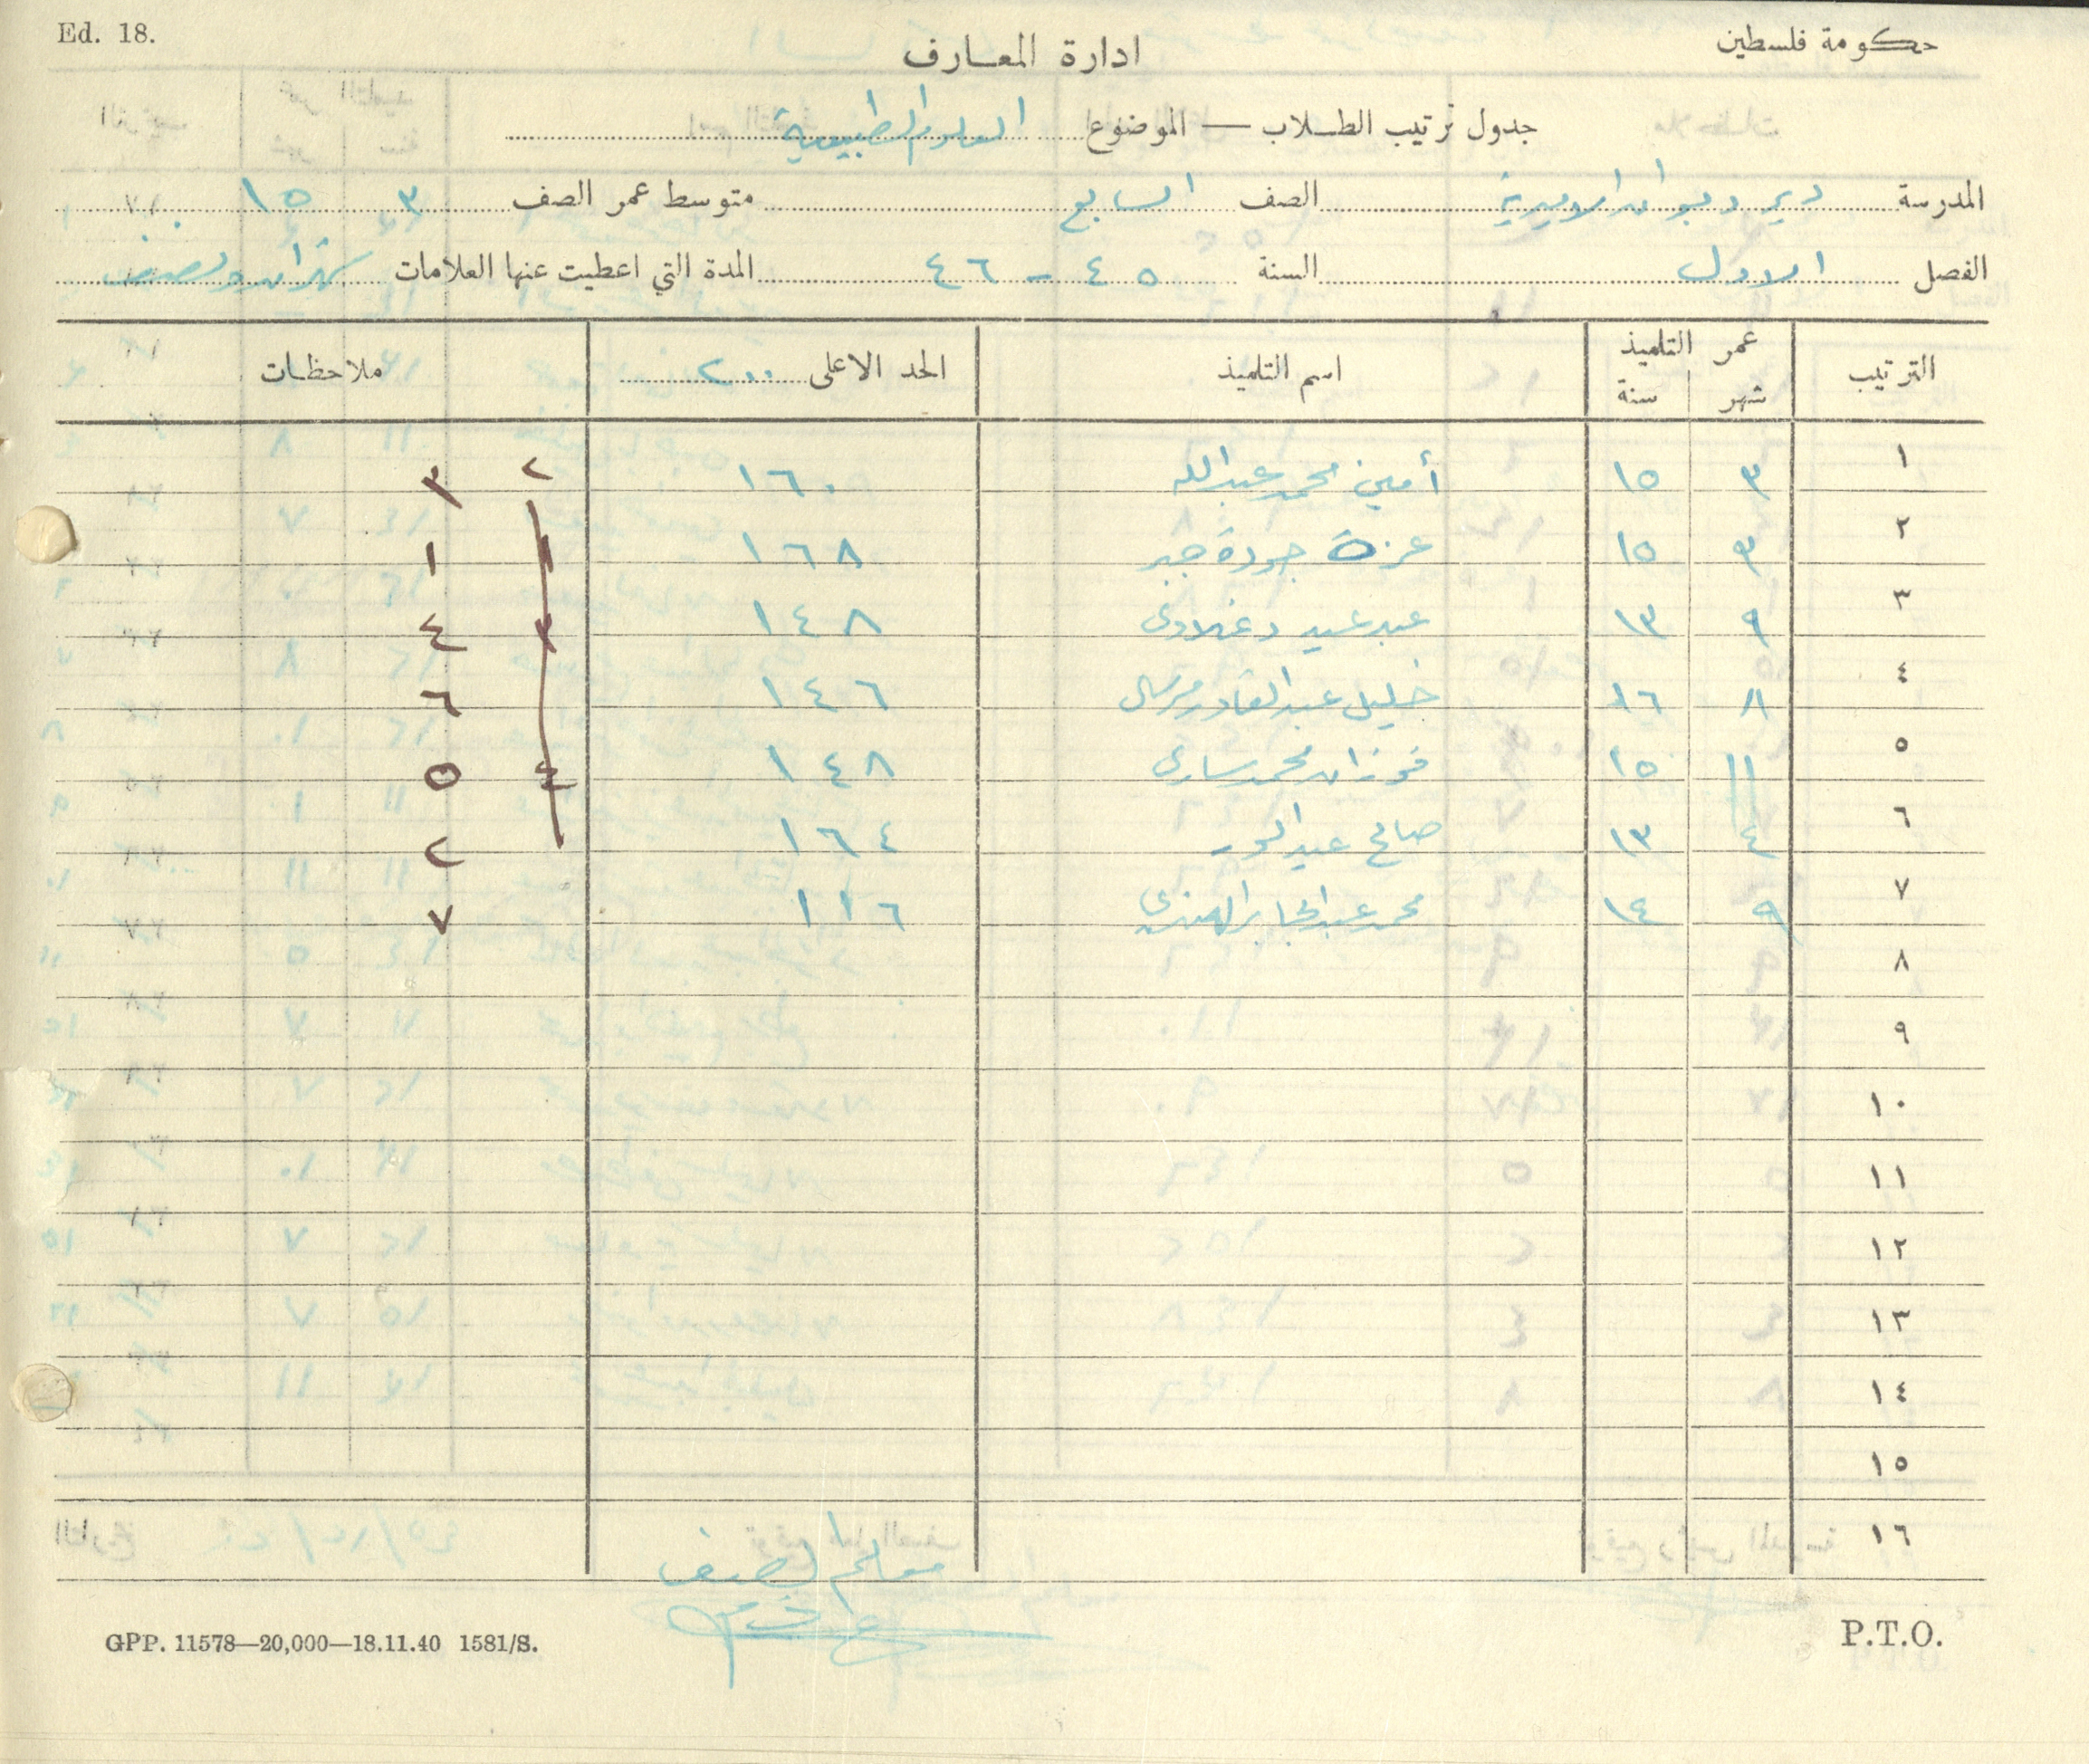 Ed. 18.
حكومة فلسطين
ادارة المعارف
جدول ترتيب الطلاب — الموضوع العلوم الطبيعية
المدرسة دير دبوان الاميرية الصف السابع متوسط عمر الصف ٣ ١٥
الفصل الاول السنة ٤٥ - ٤٦ المدة التي اعطيت عنها العلامات شهران ونصف
الترتيب عمر التلميذ شهر سنة اسم التلميذ الحد الاعلى ٢٠٠ ملاحظات
١ ٣ ١٥ أمين محمد عبدالله ١٦٠ ٢ ٣
٢ ٣ ١٥ عزت جودة جبر ١٦٨ ١ ١
٣ ٩ ١٣ عبد عيد ١٤٨ ٣ ٤
٤ ٨ ١٦ خليل عبد القادر ١٤٦ ٦
٥ ١١ ١٥ فوزان محمد ساري ١٤٨ ٤ ٥
٦ ٤ ١٣ صالح عبد ١٦٤ ٢
٧ ٩ ١٤ محمد عبد الجابر ١١٦ ٧
٨
٩
١٠
١١
١٢
١٣
١٤
١٥
١٦
معلم الصف
GPP. 11578—20,000—18.11.40 1581/S.
P.T.O.